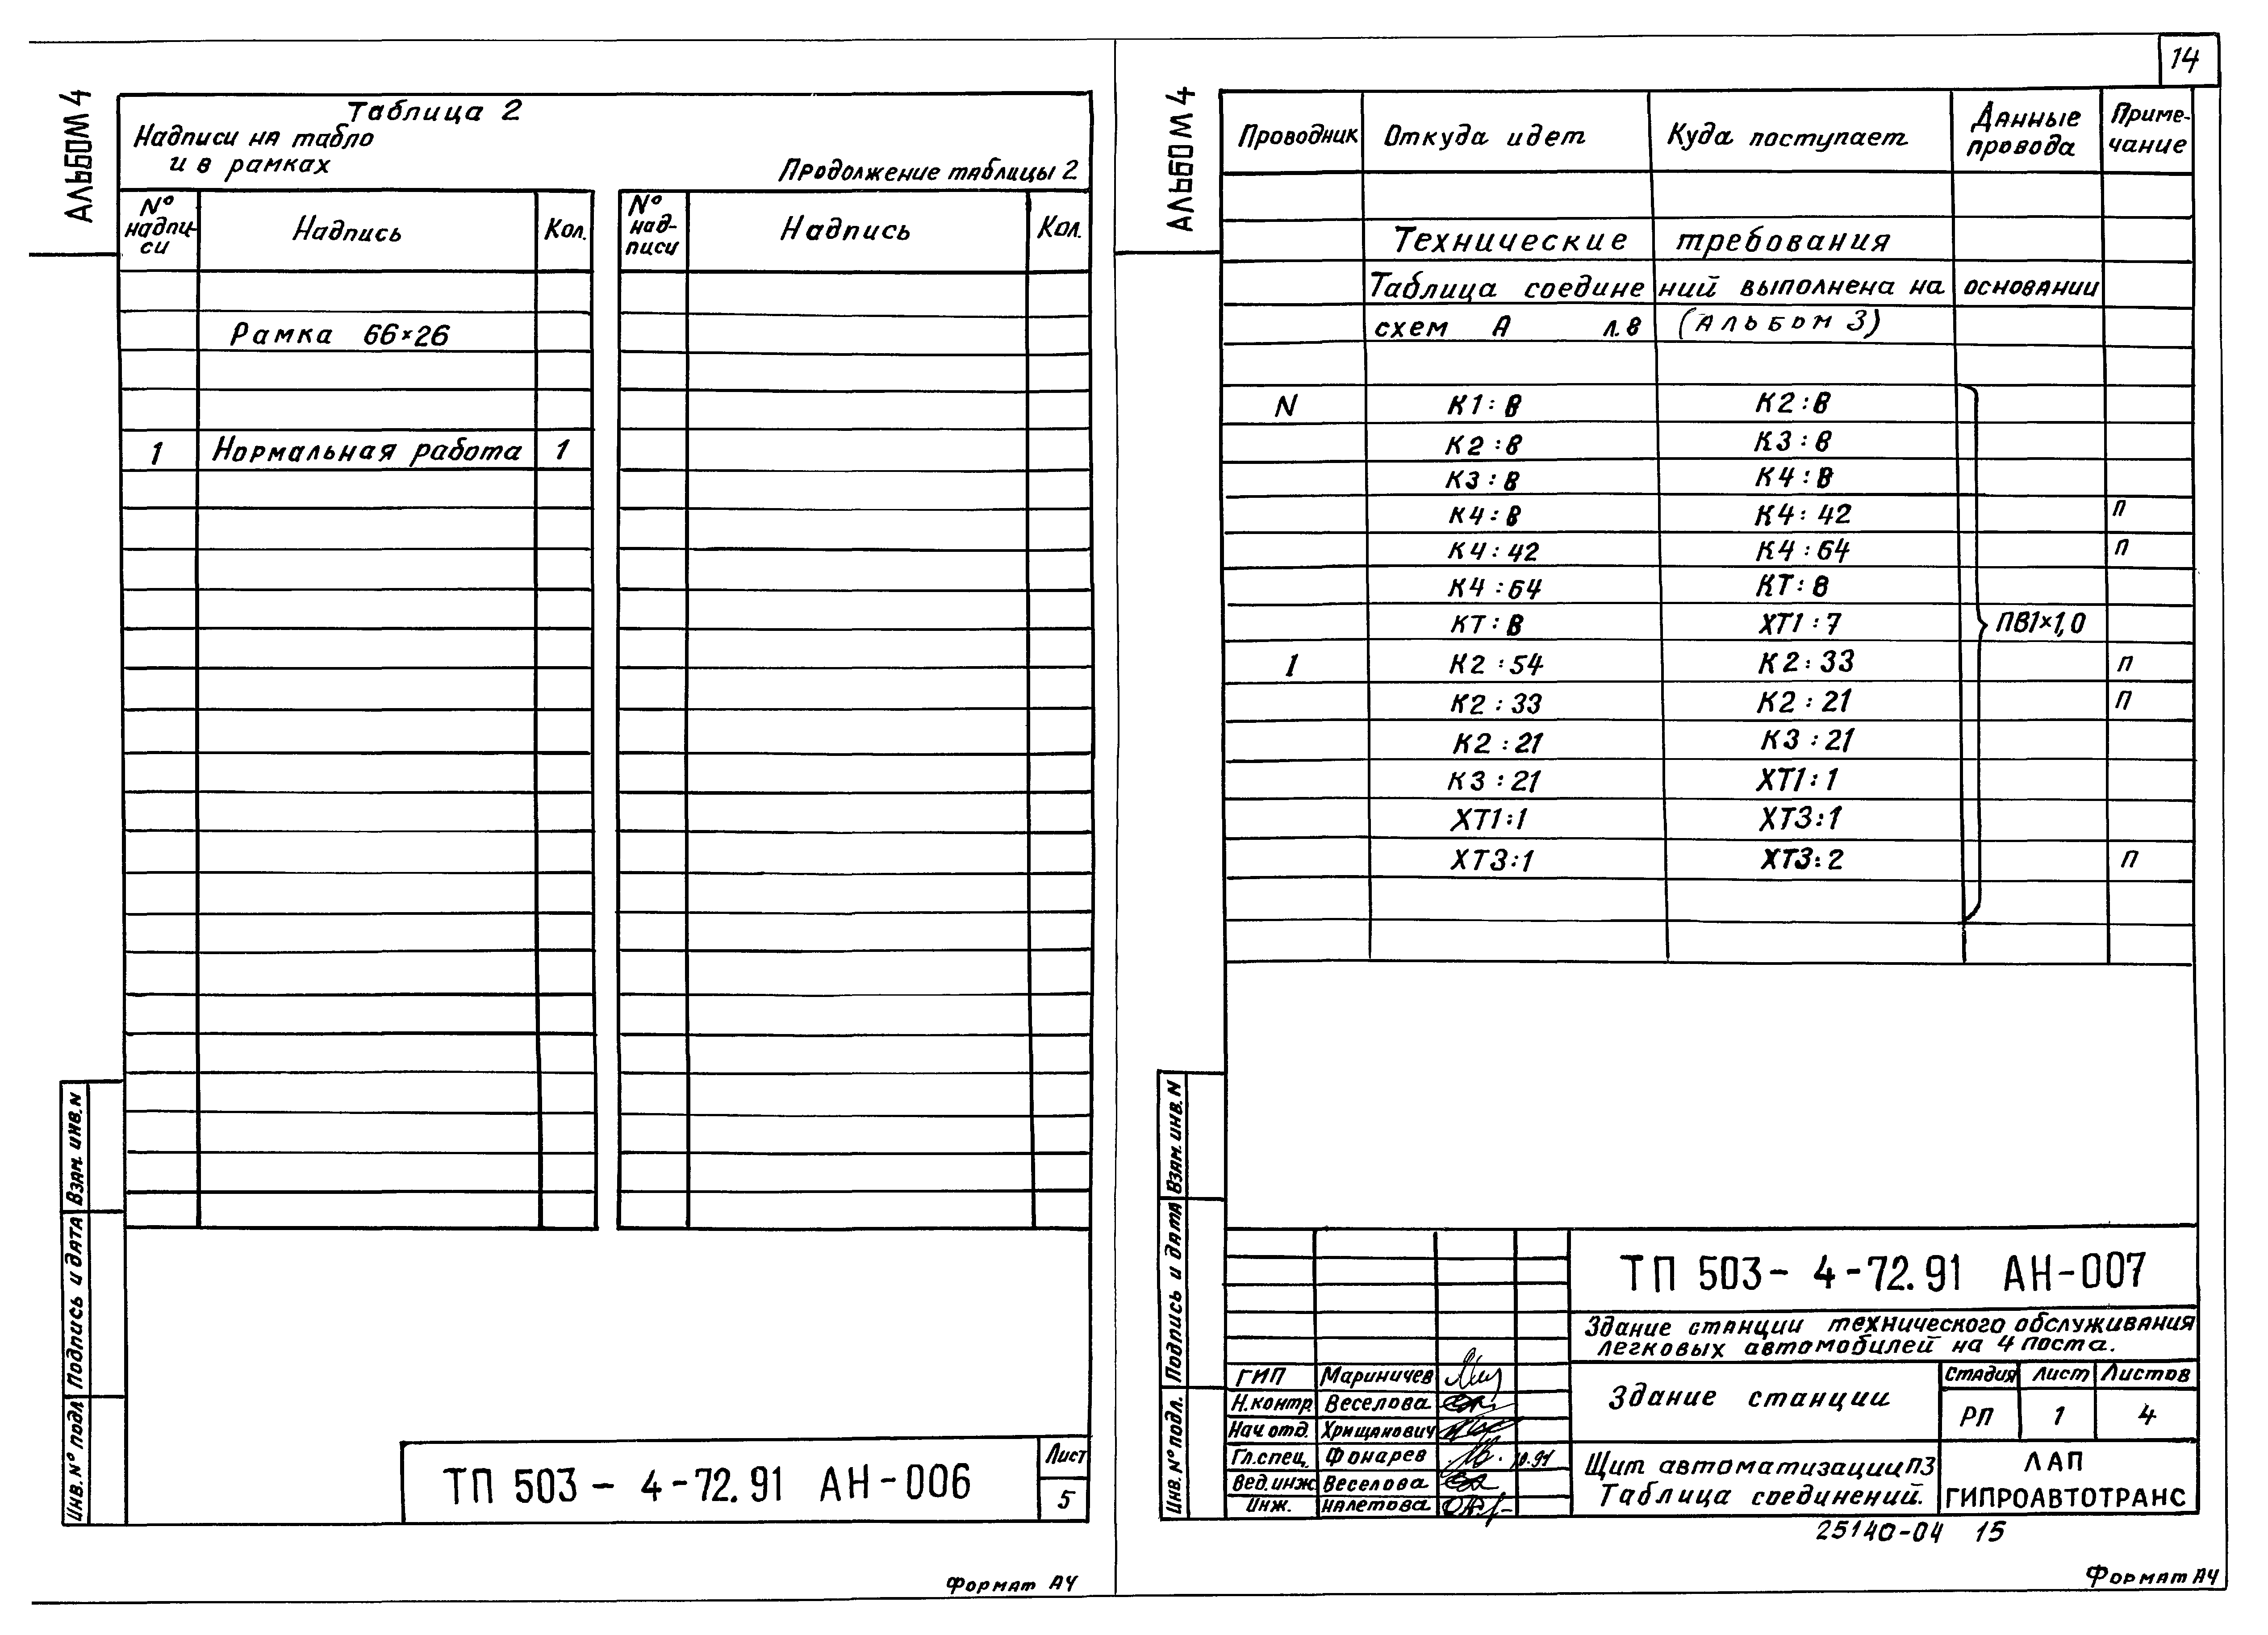 14
АЛЬБОМ 4
Таблица 2
Надписи на табло
и в рамках
Продолжение таблицы 2
№ надпи-си Надпись Кол.
№ над-писи Надпись Кол.
Рамка 66×26
1 Нормальная работа 1
Взам. инв. N
Подпись и дата
Инв. № подл.
ТП 503 - 4 - 72.91 АН - 006
Лист
5
Формат А4
АЛЬБОМ 4
Проводник Откуда идет Куда поступает Данные провода Приме-чание
Технические требования
Таблица соединений выполнена на основании
схем А л.8 (Альбом 3)
N К1:В К2:В
К2:В К3:В
К3:В К4:В
К4:В К4:42 П
К4:42 К4:64 П
К4:64 КТ:В
КТ:В ХТ1:7 ПВ1×1,0
1 К2:54 К2:33 П
К2:33 К2:21 П
К2:21 К3:21
К3:21 ХТ1:1
ХТ1:1 ХТ3:1
ХТ3:1 ХТ3:2 П
Взам. инв. N
Подпись и дата
Инв. № подл.
ТП 503 - 4 - 72.91 АН - 007
Здание станции технического обслуживания
легковых автомобилей на 4 поста.
ГИП Мариничев
Н.контр. Веселова
Нач отд. Хрищанович
Гл.спец. Фонарев 10.91
Вед.инж. Веселова
Инж. Налетова
Здание станции
Стадия Лист Листов
РП 1 4
Щит автоматизации ПЗ
Таблица соединений.
ЛАП
ГИПРОАВТОТРАНС
25140-04 15
Формат А4